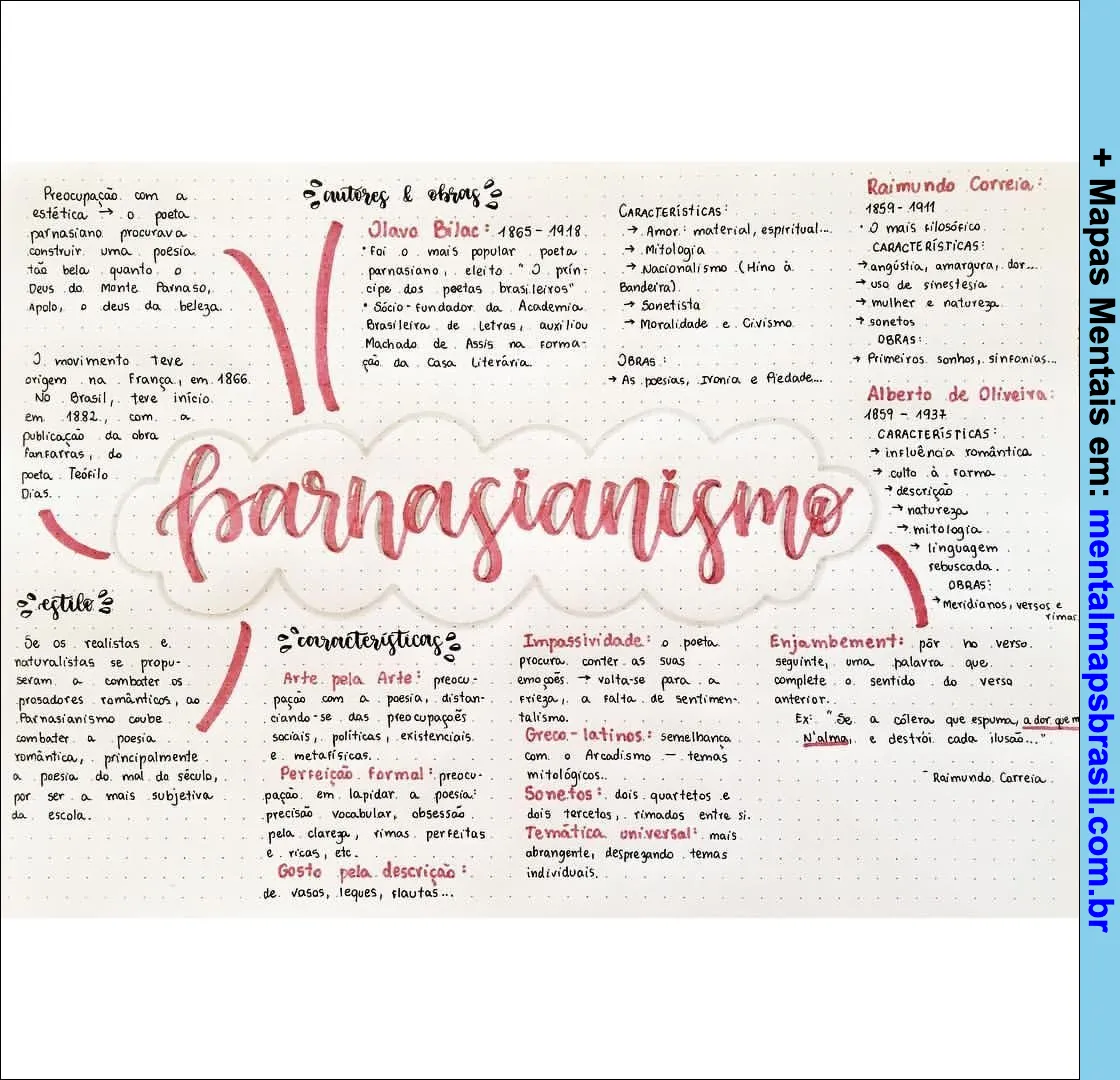 Preocupação com a
estética → o poeta
parnasiano procurava
construir uma poesia
tão bela quanto o
Deus do Monte Parnaso,
Apolo, o deus da beleza.
O movimento teve
origem na França, em 1866.
No Brasil, teve início
em 1882, com a
publicação da obra
fanfarras, do
poeta Teófilo
Dias.
autores & obras
Olavo Bilac: 1865-1918
• Foi o mais popular poeta
parnasiano, eleito "O prín-
cipe dos poetas brasileiros"
• Sócio-fundador da Academia
Brasileira de Letras, auxiliou
Machado de Assis na forma-
ção da Casa Literária.
CARACTERÍSTICAS:
→ Amor: material, espiritual...
→ Mitologia
→ Nacionalismo (Hino à
Bandeira)
→ Sonetista
→ Moralidade e Civismo
OBRAS:
→ As poesias, Ironia e Piedade...
Raimundo Correia:
1859-1911
• O mais filosófico
CARACTERÍSTICAS:
→ angústia, amargura, dor...
→ uso de sinestesia
→ mulher e natureza
→ sonetos
OBRAS:
→ Primeiros sonhos, sinfonias...
Alberto de Oliveira:
1859 - 1937
CARACTERÍSTICAS:
→ influência romântica
→ culto à forma
→ descrição
→ natureza
→ mitologia
→ linguagem
rebuscada.
OBRAS:
→ Meridianos, versos e
rimas
parnasianismo
estilo
Se os realistas e
naturalistas se propu-
seram a combater os
prosadores românticos, ao
Parnasianismo coube
combater a poesia
romântica, principalmente
a poesia do mal do século,
por ser a mais subjetiva
da escola.
características
Arte pela Arte: preocu-
pação com a poesia, distan-
ciando-se das preocupações
sociais, políticas, existenciais
e metafísicas.
Perfeição formal: preocu-
pação em lapidar a poesia:
precisão vocabular, obsessão
pela clareza, rimas perfeitas
e ricas, etc.
Gosto pela descrição:
de vasos, leques, flautas...
Impassividade: o poeta
procura conter as suas
emoções. → volta-se para a
frieza, a falta de sentimen-
talismo.
Greco-latinos: semelhança
com o Arcadismo — temas
mitológicos.
Sonetos: dois quartetos e
dois tercetos, rimados entre si.
Temática universal: mais
abrangente, desprezando temas
individuais.
Enjambement: pôr no verso
seguinte, uma palavra que
complete o sentido do verso
anterior.
Ex: "Se a cólera que espuma, a dor que m
N'alma, e destrói cada ilusão..."
- Raimundo Correia
+ Mapas Mentais em: mentalmapsbrasil.com.br